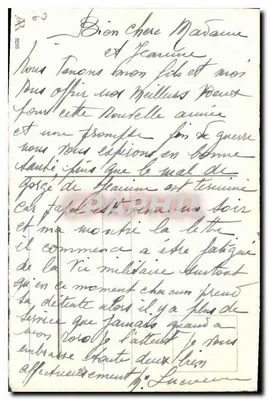 Bien chère Madame
et Jeanine
Nous Tenons mon fils et moi
Vous offrir nos Meilleurs Voeux
pour cette Nouvelle année
et une prompte fin de guerre
nous Vous espérons en bonne
santé puis que le mal de
gorge de Jeanine est terminé
car est venu un soir
et ma montré la lettre
il commence a être fatigué
de la Vie militaire surtout
qu'en ce moment chacun prend
sa détente alors il y a plus de
service que jamais quand a
mon je l'attend je vous
embrasse toute deux bien
affectueusement